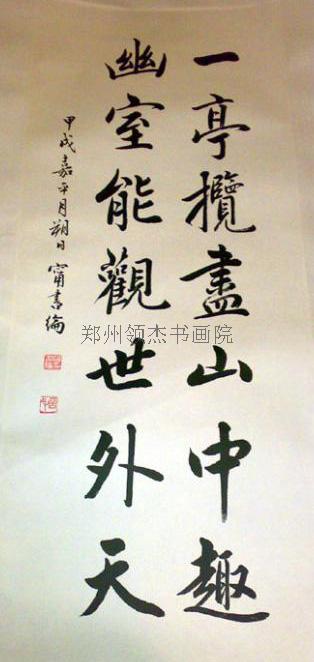 一亭攬盡山中趣
幽室能觀世外天
甲戌嘉平月朔日 甯書綸
郑州领杰书画院